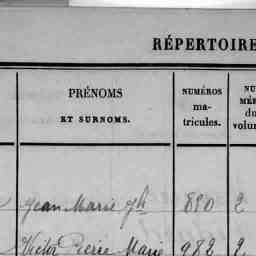 RÉPERTOIRE
PRÉNOMS
ET SURNOMS.
NUMÉROS
ma-
tricules.
Jean Marie Jh 890 2
Victor Pierre Marie 982 2